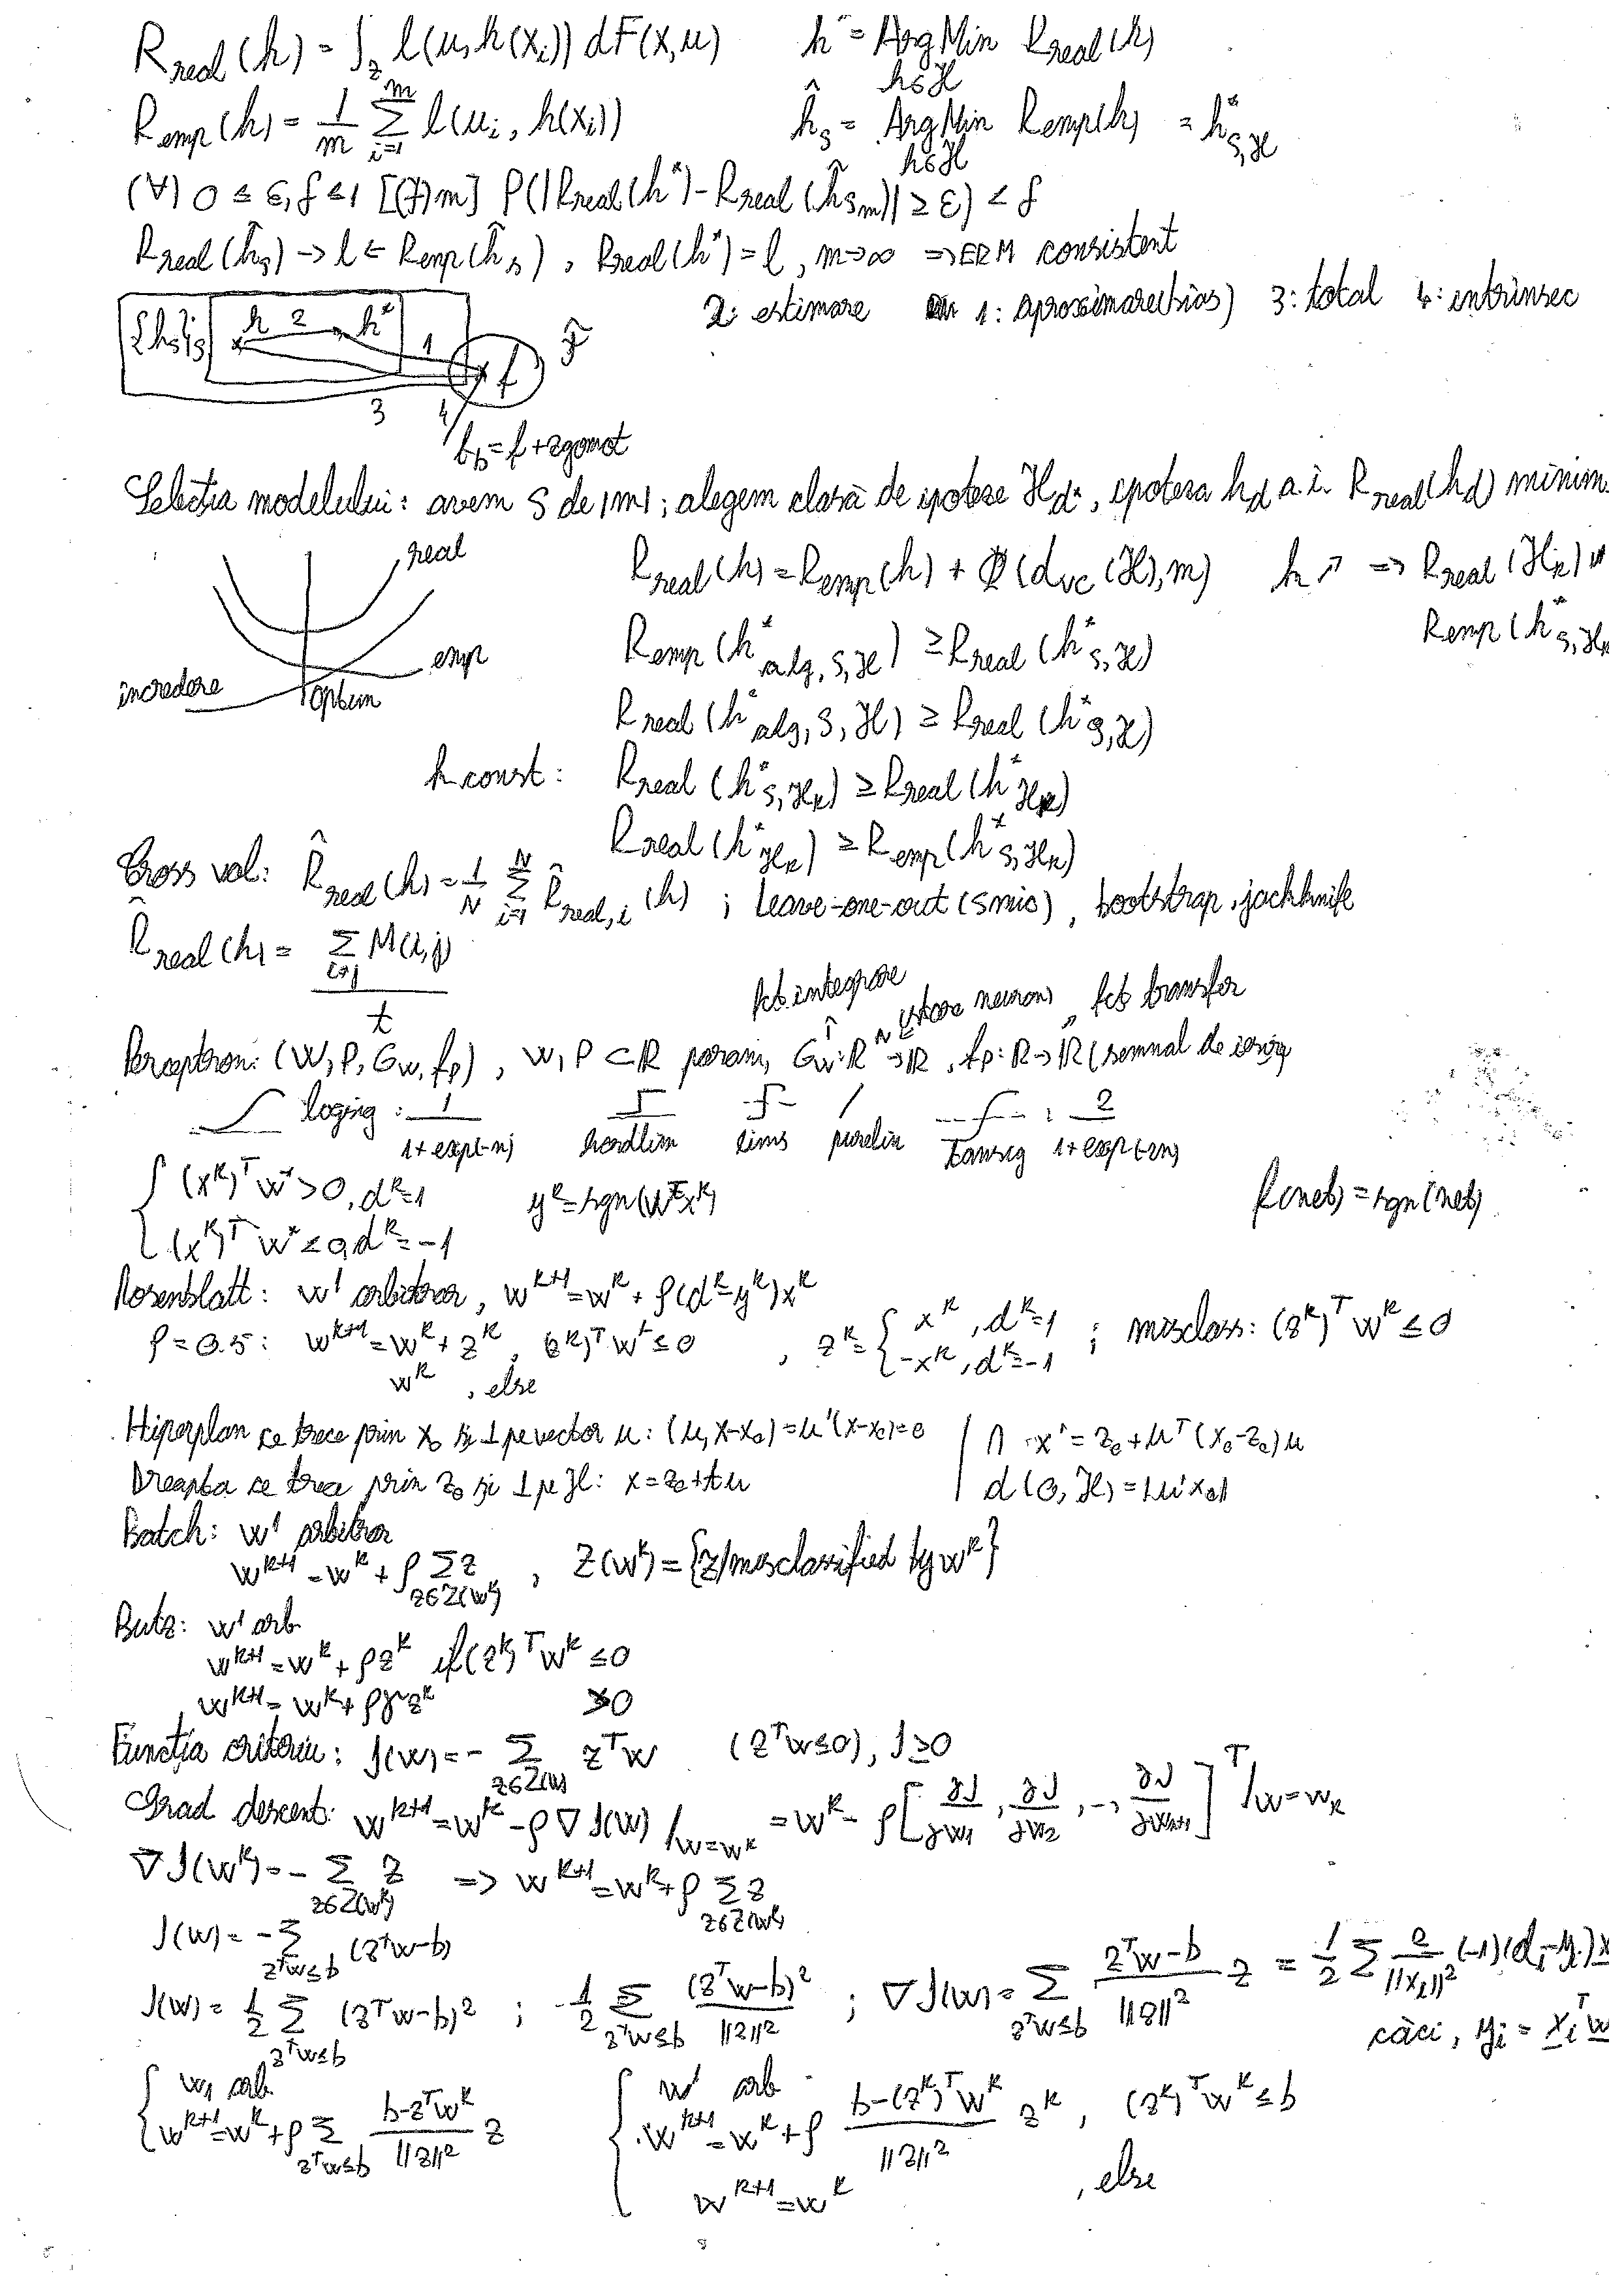 R_real(h) = ∫_z l(u, h(x_i)) dF(x,u)    h* = ArgMin_{h∈ℋ} R_real(h)
R_emp(h) = 1/m Σ_{i=1}^{m} l(u_i, h(x_i))    ĥ_S = ArgMin_{h∈ℋ} R_emp(h) = h*_{S,ℋ}
(∀) 0 ≤ ε, δ ≤ 1 [(∃) m] P(|R_real(h*) - R_real(ĥ_{Sm})| ≥ ε) < δ
R_real(ĥ_S) → l ← R_emp(ĥ_S), R_real(h*) = l, m→∞ ⇒ ERM consistent
2: estimare 1: aproximare(bias) 3: total 4: intrinsec
{h_S}_S h 2 h* 1 f
3 4
f_b = f + zgomot
Selecția modelului: avem S de |m|; alegem clasă de ipoteze ℋ_d, ipoteza h_d a.î. R_real(h_d) minim.
real
R_real(h) = R_emp(h) + Φ(d_VC(ℋ), m)    h ↗ ⇒ R_real(ℋ_k)
emp    R_emp(h*_{alg,S,ℋ}) ≥ R_real(h*_{S,ℋ})    R_emp(h*_{S,ℋ_k}
încredere optim
R_real(h*_{alg,S,ℋ}) ≥ R_real(h*_{S,ℋ})
h const: R_real(h*_{S,ℋ_k}) ≥ R_real(h*_{ℋ_k})
R_real(h*_{ℋ_k}) ≥ R_emp(h*_{S,ℋ_k})
Cross val: R̂_real(h) = 1/N Σ_{i=1}^{N} R̂_{real,i}(h) ; leave-one-out (S mic), bootstrap, jackknife
R̂_real(h) = Σ_{i≠j} M(i,j) / t
fct integrare stare neuron, fct transfer
Perceptron: (W, P, G_w, f_p), W, P ⊂ ℝ param, G_w: ℝ^N → ℝ, f_p: ℝ → ℝ (semnal de ieșire
logsig: 1/(1+exp(-n)) hardlim lims purelin tansig : 2/(1+exp(-2n))
{ (x^k)^T w* > 0, d^k = 1    y^k = sgn(w^T x^k)    f(net) = sgn(net)
(x^k)^T w* < 0, d^k = -1
Rosenblatt: w¹ arbitrar, w^{k+1} = w^k + ρ(d^k - y^k)x^k
ρ = 0.5: w^{k+1} = w^k + z^k, (z^k)^T w^k ≤ 0 , z^k = { x^k, d^k = 1 ; -x^k, d^k = -1 ; misclass: (z^k)^T w^k ≤ 0
w^k, else
Hiperplan ce trece prin x₀ și ⊥ pe vector u: (u, x-x₀) = u'(x-x₀) = 0 | ∩ x' = z₀ + u^T(x₀-z₀)u
Dreapta ce trece prin z₀ și ⊥ pe ℋ: x = z₀ + tu | d(0, ℋ) = |u'x₀|
Batch: w¹ arbitrar
w^{k+1} = w^k + ρ Σ_{z∈Z(w^k)} z, Z(w^k) = {z/misclassified by w^k}
Butz: w¹ arb
w^{k+1} = w^k + ρz^k if (z^k)^T w^k ≤ 0
w^{k+1} = w^k + ργz^k    >0
Funcția criteriu: J(w) = - Σ_{z∈Z(w)} z^T w    (z^T w ≤ 0), J ≥ 0
Grad descent: w^{k+1} = w^k - ρ∇J(w) /_{w=w^k} = w^k - ρ[∂J/∂w₁, ∂J/∂w₂, ..., ∂J/∂w_{n+1}]^T /_{w=w_k}
∇J(w^k) = - Σ_{z∈Z(w^k)} z ⇒ w^{k+1} = w^k + ρ Σ_{z∈Z(w^k)} z
J(w) = - Σ_{z^T w≤b} (z^T w - b)
J(w) = 1/2 Σ_{z^T w≤b} (z^T w - b)² ; 1/2 Σ_{z^T w≤b} (z^T w - b)²/||z||² ; ∇J(w) = Σ_{z^T w≤b} (z^T w - b)/||z||² z = 1/2 Σ 2/||x_i||² (-1)(d_i - y_i)x
căci, y_i = x_i^T w
{ w₁ arb    { w¹ arb
w^{k+1} = w^k + ρ Σ_{z^T w≤b} (b - z^T w^k)/||z||² z    w^{k+1} = w^k + ρ (b - (z^k)^T w^k)/||z||² z^k, (z^k)^T w^k ≤ b
w^{k+1} = w^k    , else